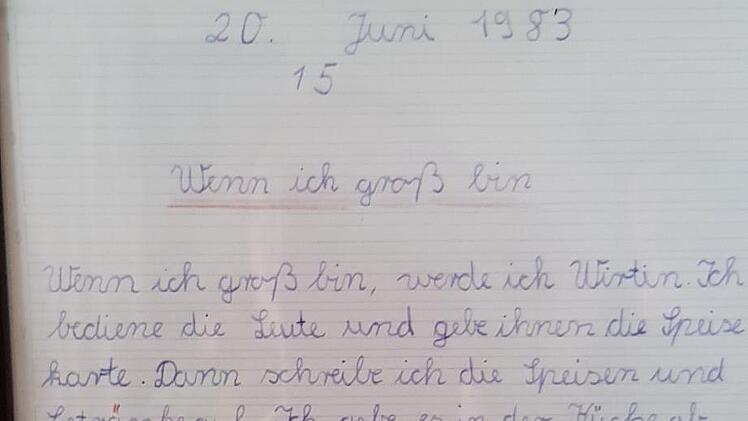 20. Juni 1983
15
Wenn ich groß bin
Wenn ich groß bin, werde ich Wirtin. Ich
bediene die Leute und gebe ihnen die Speise
karte. Dann schreibe ich die Speisen und
Getränke auf. Ich gebe es in der Küche ab